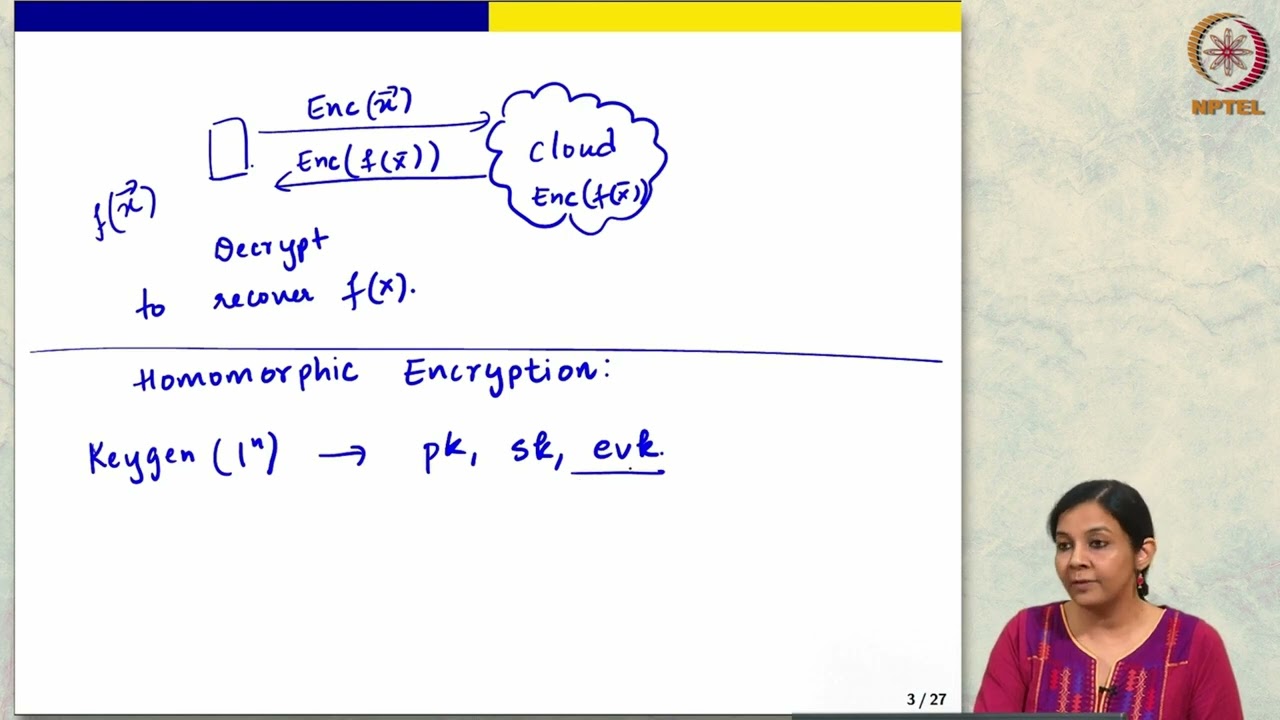 Enc(x⃗)
Enc(f(x̄))
cloud
Enc(f(x̄))
f(x⃗)
Decrypt
to recover f(x).
Homomorphic Encryption:
Keygen (1ⁿ) → pk, sk, evk.
3 / 27
NPTEL